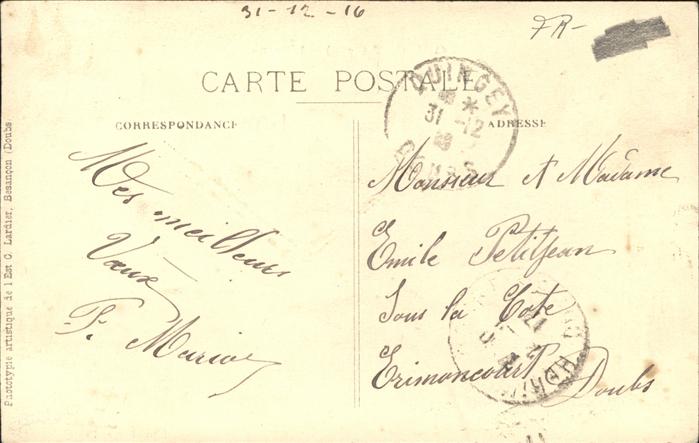 31-12-16
FR-
CARTE POSTALE
QUINGEY
31-12
DOUBS
CORRESPONDANCE
ADRESSE
Mes meilleurs
Vœux
F. Mariot
Monsieur et Madame
Emile Petitjean
Sous la Côte
Erimoncourt
Doubs
Phototypie artistique de l'Est C. Lardier, Besançon (Doubs